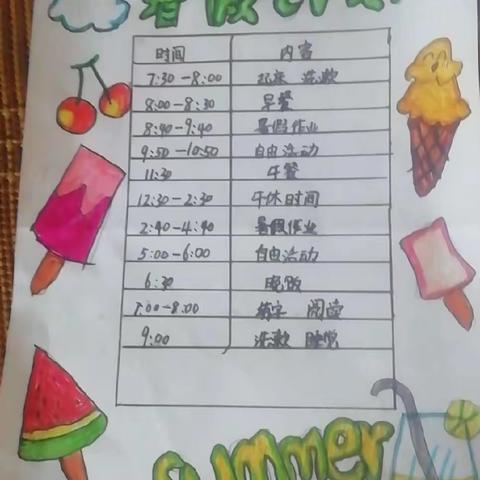 暑假计划
时间 内容
7:30-8:00 起床 洗漱
8:00-8:30 早餐
8:40-9:40 暑假作业
9:50-10:50 自由活动
11:30 午餐
12:30-2:30 午休时间
2:40-4:40 暑假作业
5:00-6:00 自由活动
6:30 晚饭
7:00-8:00 练字 阅读
9:00 洗漱 睡觉
Summer